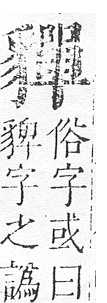 俗字或曰
貏字之譌